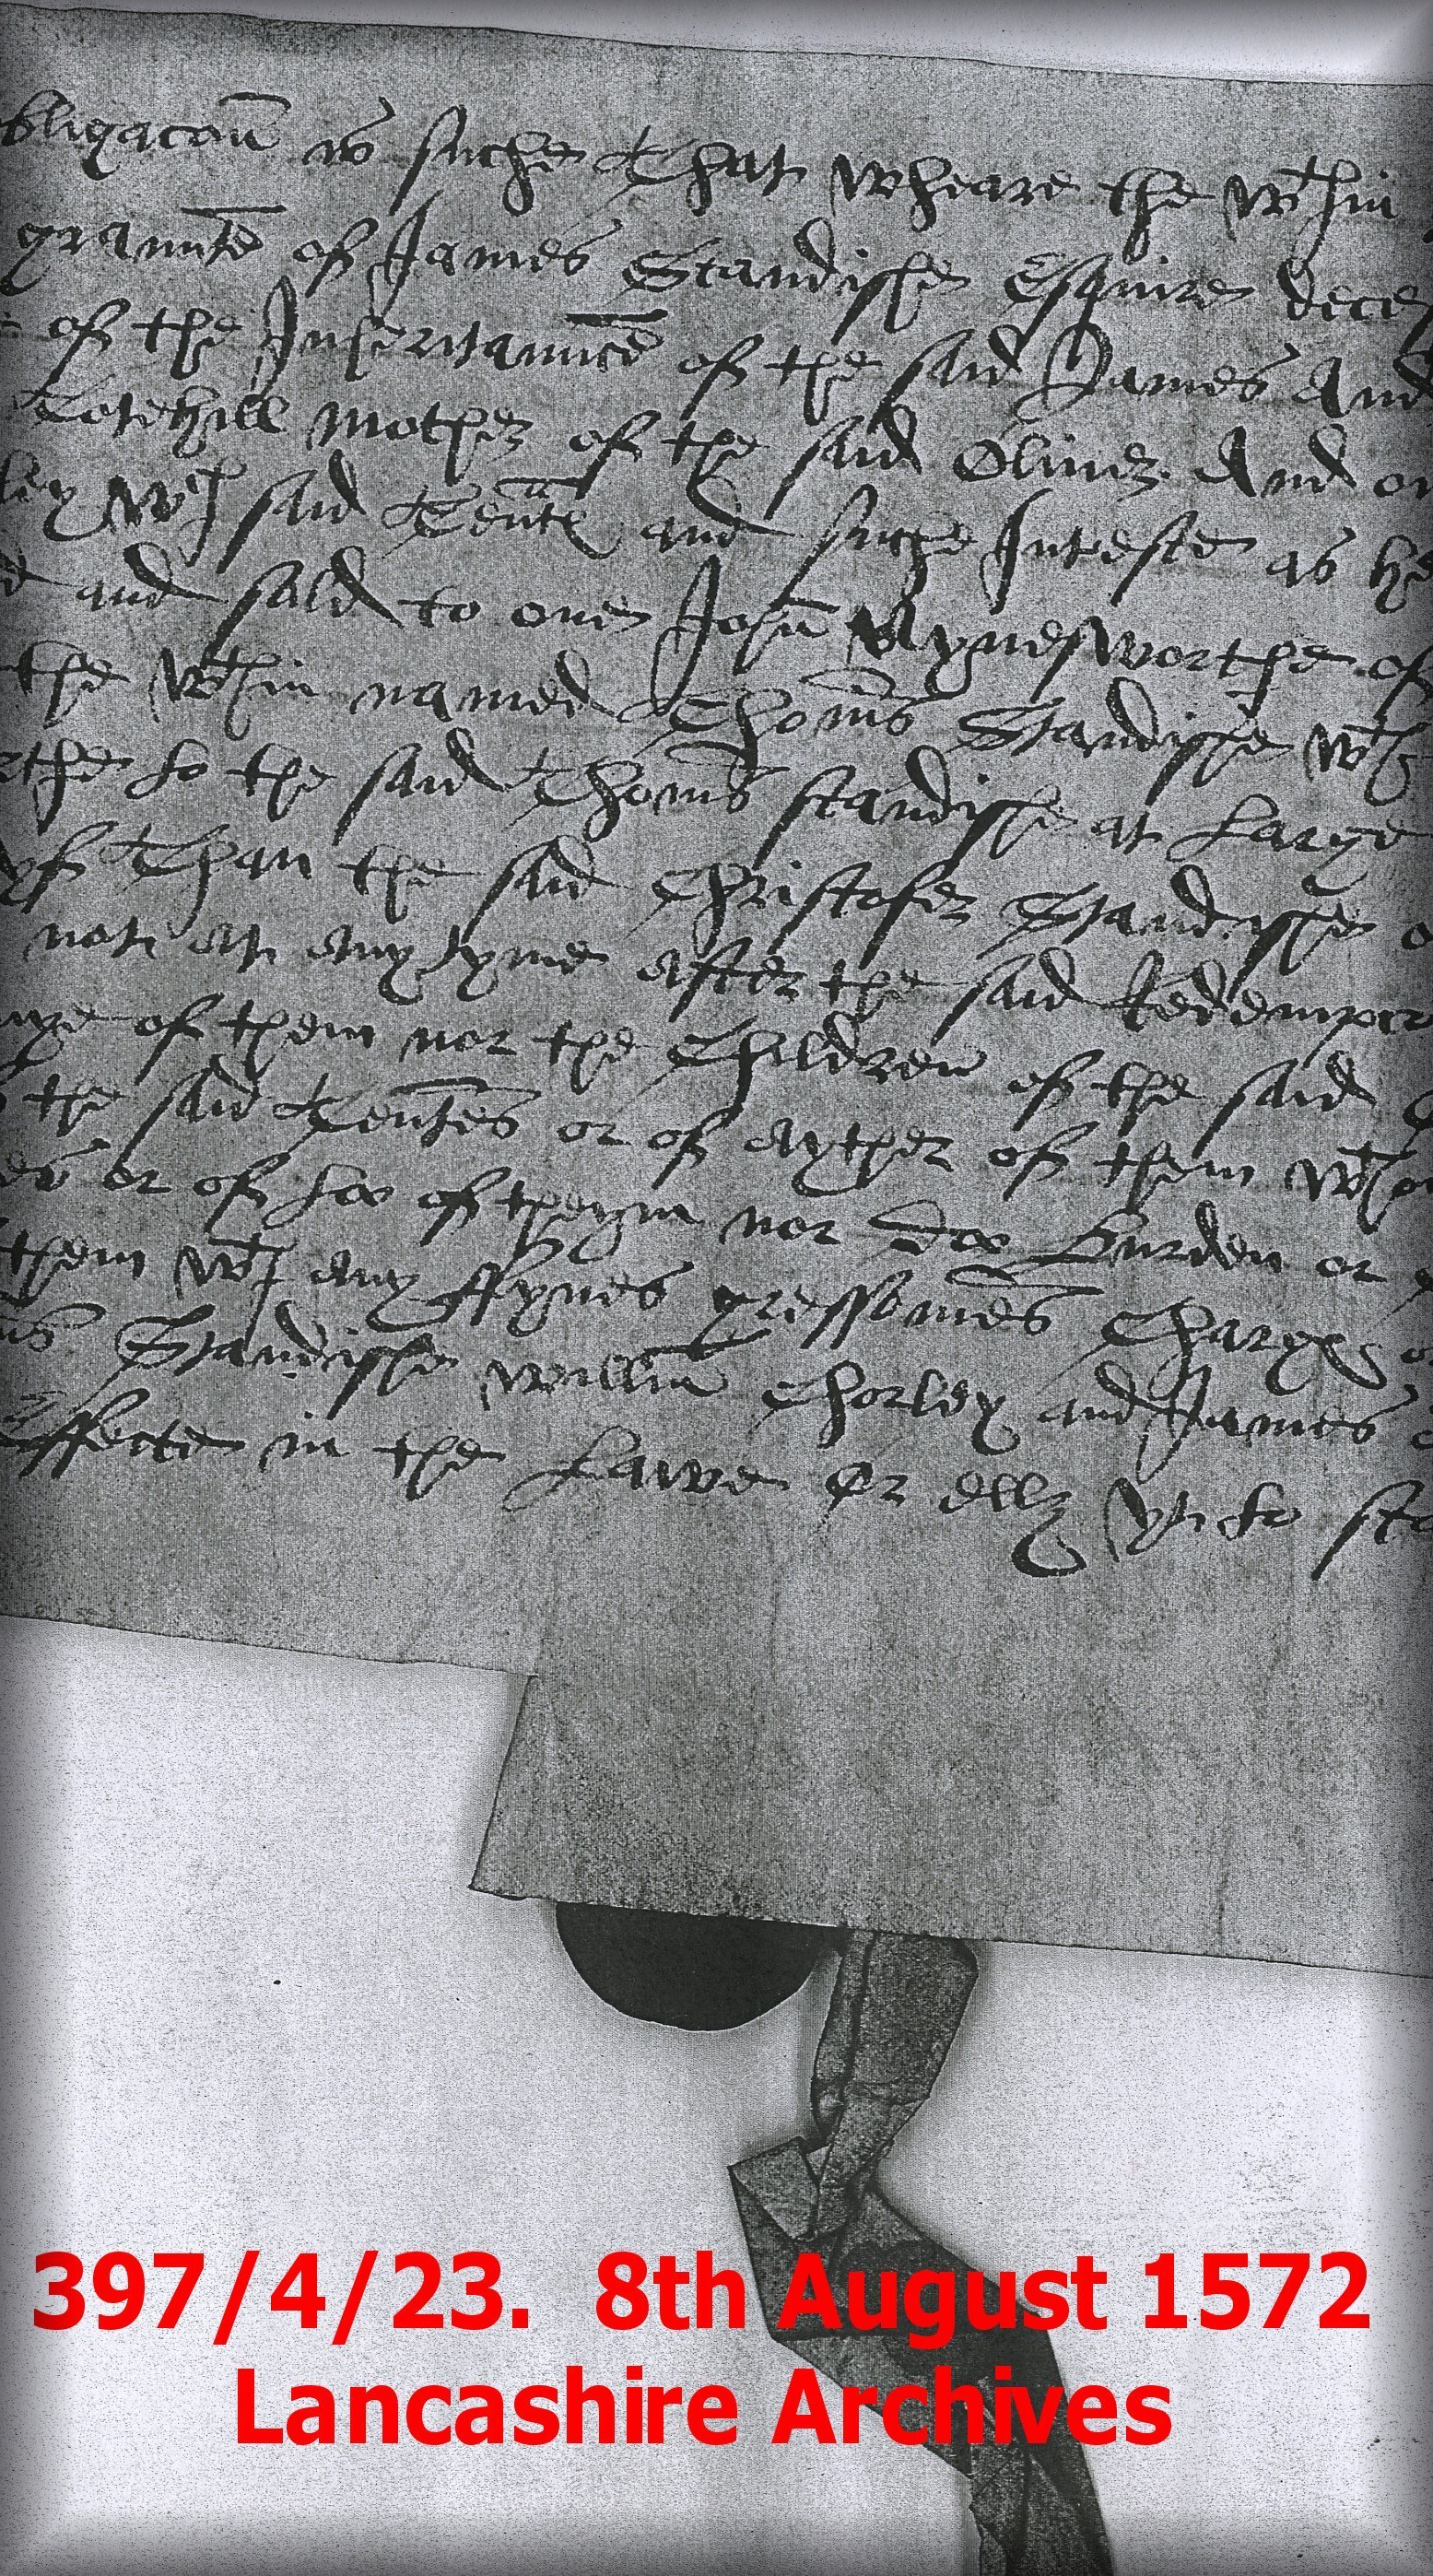 bligacōn is suche That wheare the wthin
graunte of James Standisshe Esquire dece
of the Inheritaunce of the said James And
Cetehill mother of the said Oliver And
ley wth said Tente and suche Intereste as he
and sold to one John Aynesworthe of
the wthin named Thoms Standisshe wth
othe to the said Thoms standisshe at Large
yf Than the said Christofer Standisshe
not at any tyme after the said Redempc
of them nor the Children of the said
the said Tentes or of eyther of them wthou
es or of too of theym nor doo Burden or
them wth any ffynes gressomes Charges
ms Standisshe Willm Chorley and James
Effecte in the Lawe Or ells yt to sta
397/4/23. 8th August 1572
Lancashire Archives